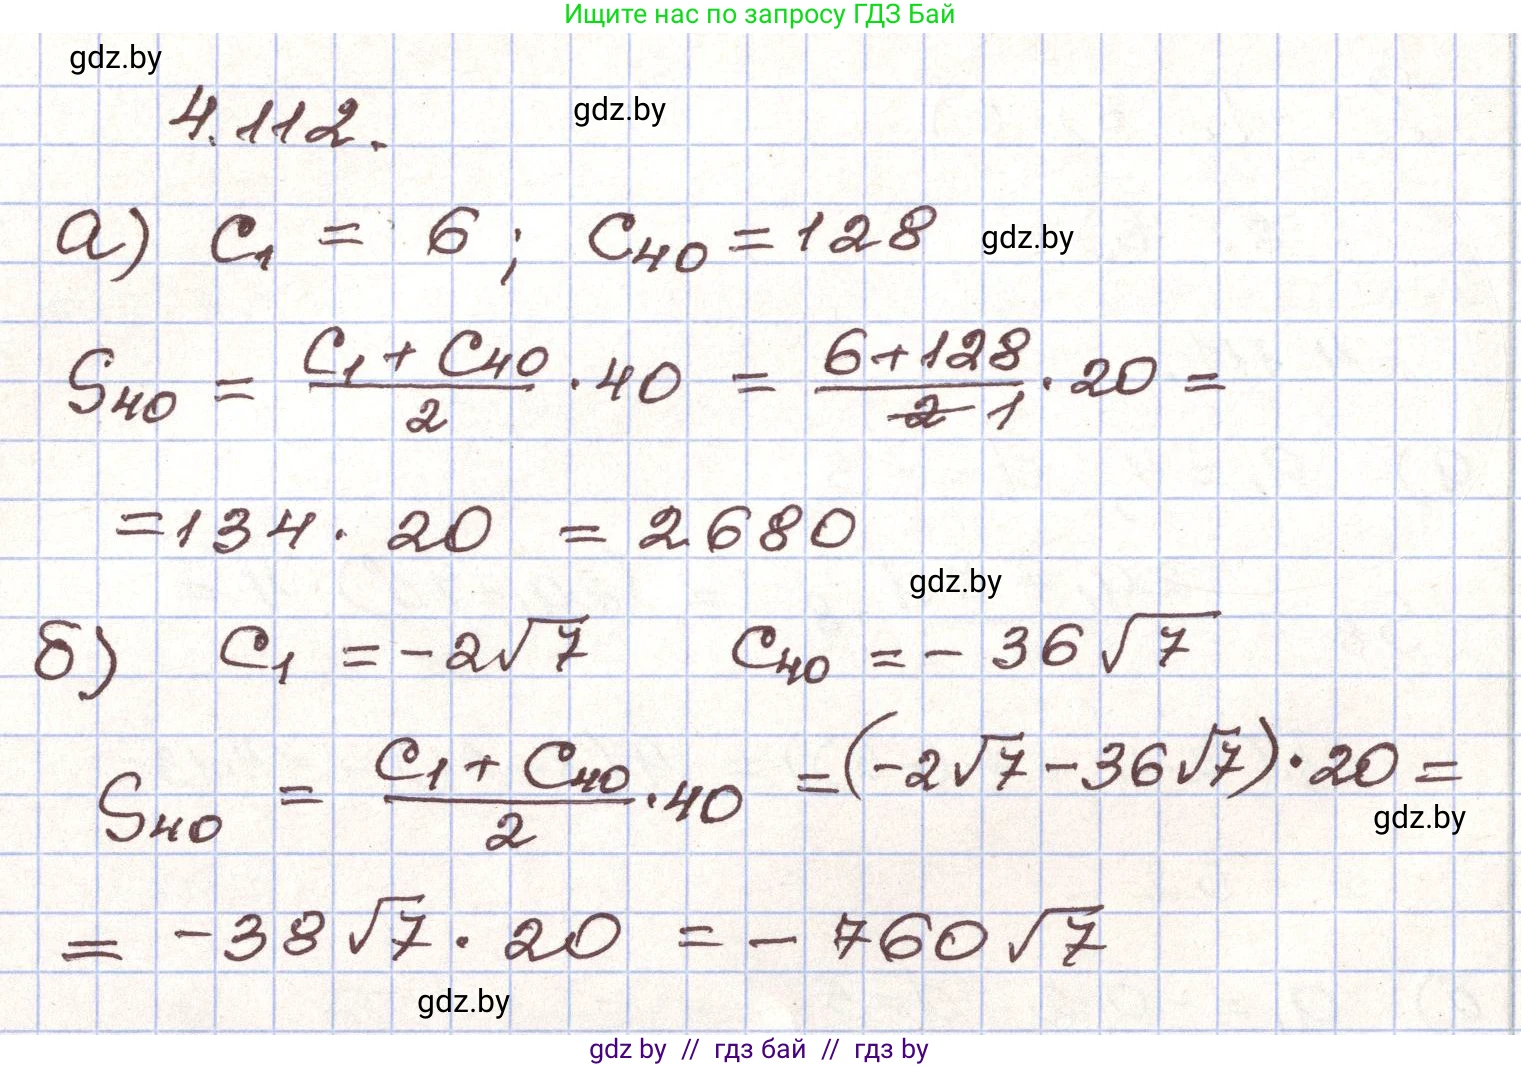 Ищите нас по запросу ГДЗ Бай
gdz.by
4.112.
gdz.by
а) C₁ = 6 ; C₄₀ = 128
gdz.by
S₄₀ = (C₁ + C₄₀)/2 · 40 = (6+128)/(2̶ 1) · 20 =
= 134 · 20 = 2680
gdz.by
б) C₁ = -2√7 C₄₀ = - 36√7
S₄₀ = (C₁ + C₄₀)/2 · 40 = (-2√7 - 36√7) · 20 =
gdz.by
= -38√7 · 20 = - 760√7
gdz.by
gdz by // гдз бай // гдз by